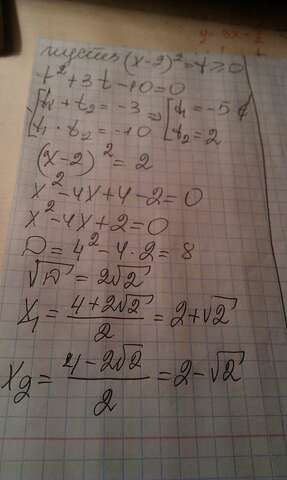 пусть (x-2)² = t ≥ 0
t² + 3t - 10 = 0
[t₁ + t₂ = -3 ⇒ [t₁ = -5 ∉
[t₁ · t₂ = -10 [t₂ = 2
(x-2)² = 2
x² - 4x + 4 - 2 = 0
x² - 4x + 2 = 0
D = 4² - 4·2 = 8
√D = 2√2
X₁ = (4 + 2√2)/2 = 2 + √2
X₂ = (4 - 2√2)/2 = 2 - √2